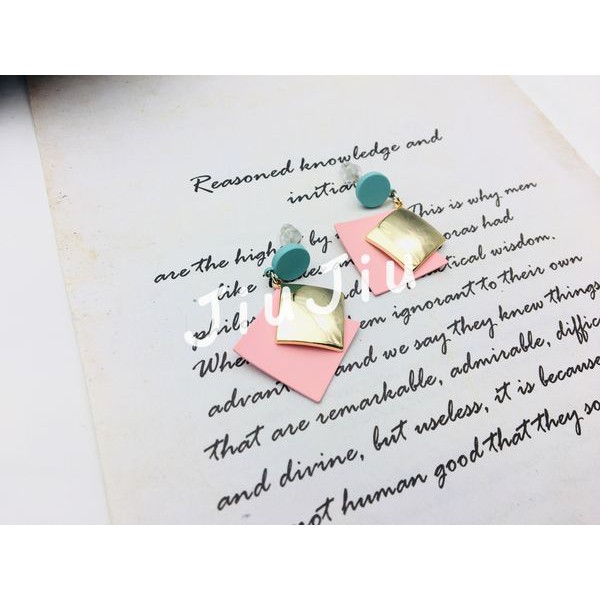 Reasoned knowledge and
initia
are the high by This is why men
like oras had
phil tical wisdom.
Whe em ignorant to their own
advan and we say they knew things
that are remarkable, admirable, diffic
and divine, but useless, it is because
not human good that they so
JiuJiu